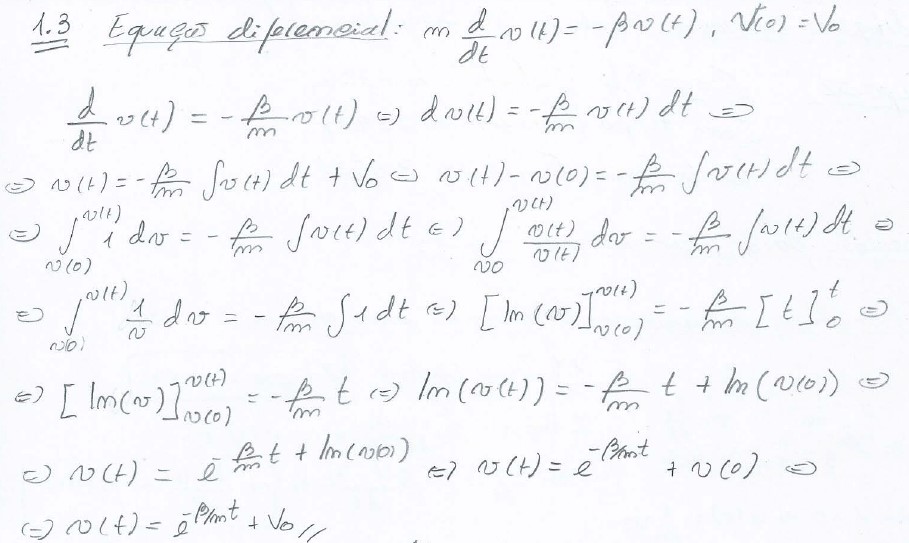 1.3 Equação diferencial: m d/dt v(t) = -βv(t), V(0) = V₀
d/dt v(t) = -β/m v(t) ⇔ dv(t) = -β/m v(t) dt ⇔
⇔ v(t) = -β/m ∫v(t) dt + V₀ ⇔ v(t) - v(0) = -β/m ∫v(t) dt ⇔
⇔ ∫_{v(0)}^{v(t)} 1 dv = -β/m ∫v(t) dt ⇔ ∫_{v0}^{v(t)} v(t)/v(t) dv = -β/m ∫v(t) dt ⇔
⇔ ∫_{v(0)}^{v(t)} 1/v dv = -β/m ∫1 dt ⇔ [ln(v)]_{v(0)}^{v(t)} = -β/m [t]_0^t ⇔
⇔ [ln(v)]_{v(0)}^{v(t)} = -β/m t ⇔ ln(v(t)) = -β/m t + ln(v(0)) ⇔
⇔ v(t) = e^{-β/m t + ln(v(0))} ⇔ v(t) = e^{-β/m t} + v(0) ⇔
⇔ v(t) = e^{-β/m t} + V₀ //